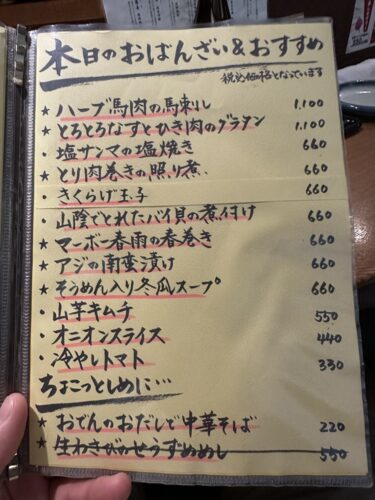 本日のおばんざい&おすすめ
税込価格となっています
★ハーブ馬肉の馬刺し 1,100
★とろとろなすとひき肉のグラタン 1,100
・塩サンマの塩焼き 660
★とり肉巻きの照り煮、 660
・きくらげ玉子 660
・山陰でとれたバイ貝の煮付け 660
★マーボー春雨の春巻き 660
★アジの南蛮漬け 660
★そうめん入り冬瓜スープ 660
・山芋キムチ 550
・オニオンスライス 440
・冷やしトマト 330
ちょこっとしめに…
★おでんのおだしで中華そば 220
★生わさびかせうずめめし 550